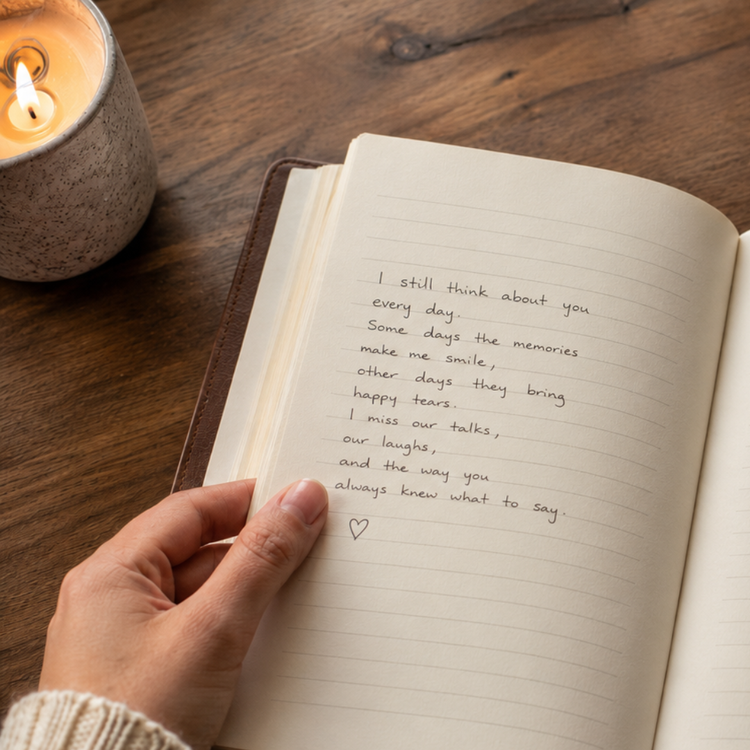 I still think about you
every day.
Some days the memories
make me smile,
other days they bring
happy tears.
I miss our talks,
our laughs,
and the way you
always knew what to say.
♡